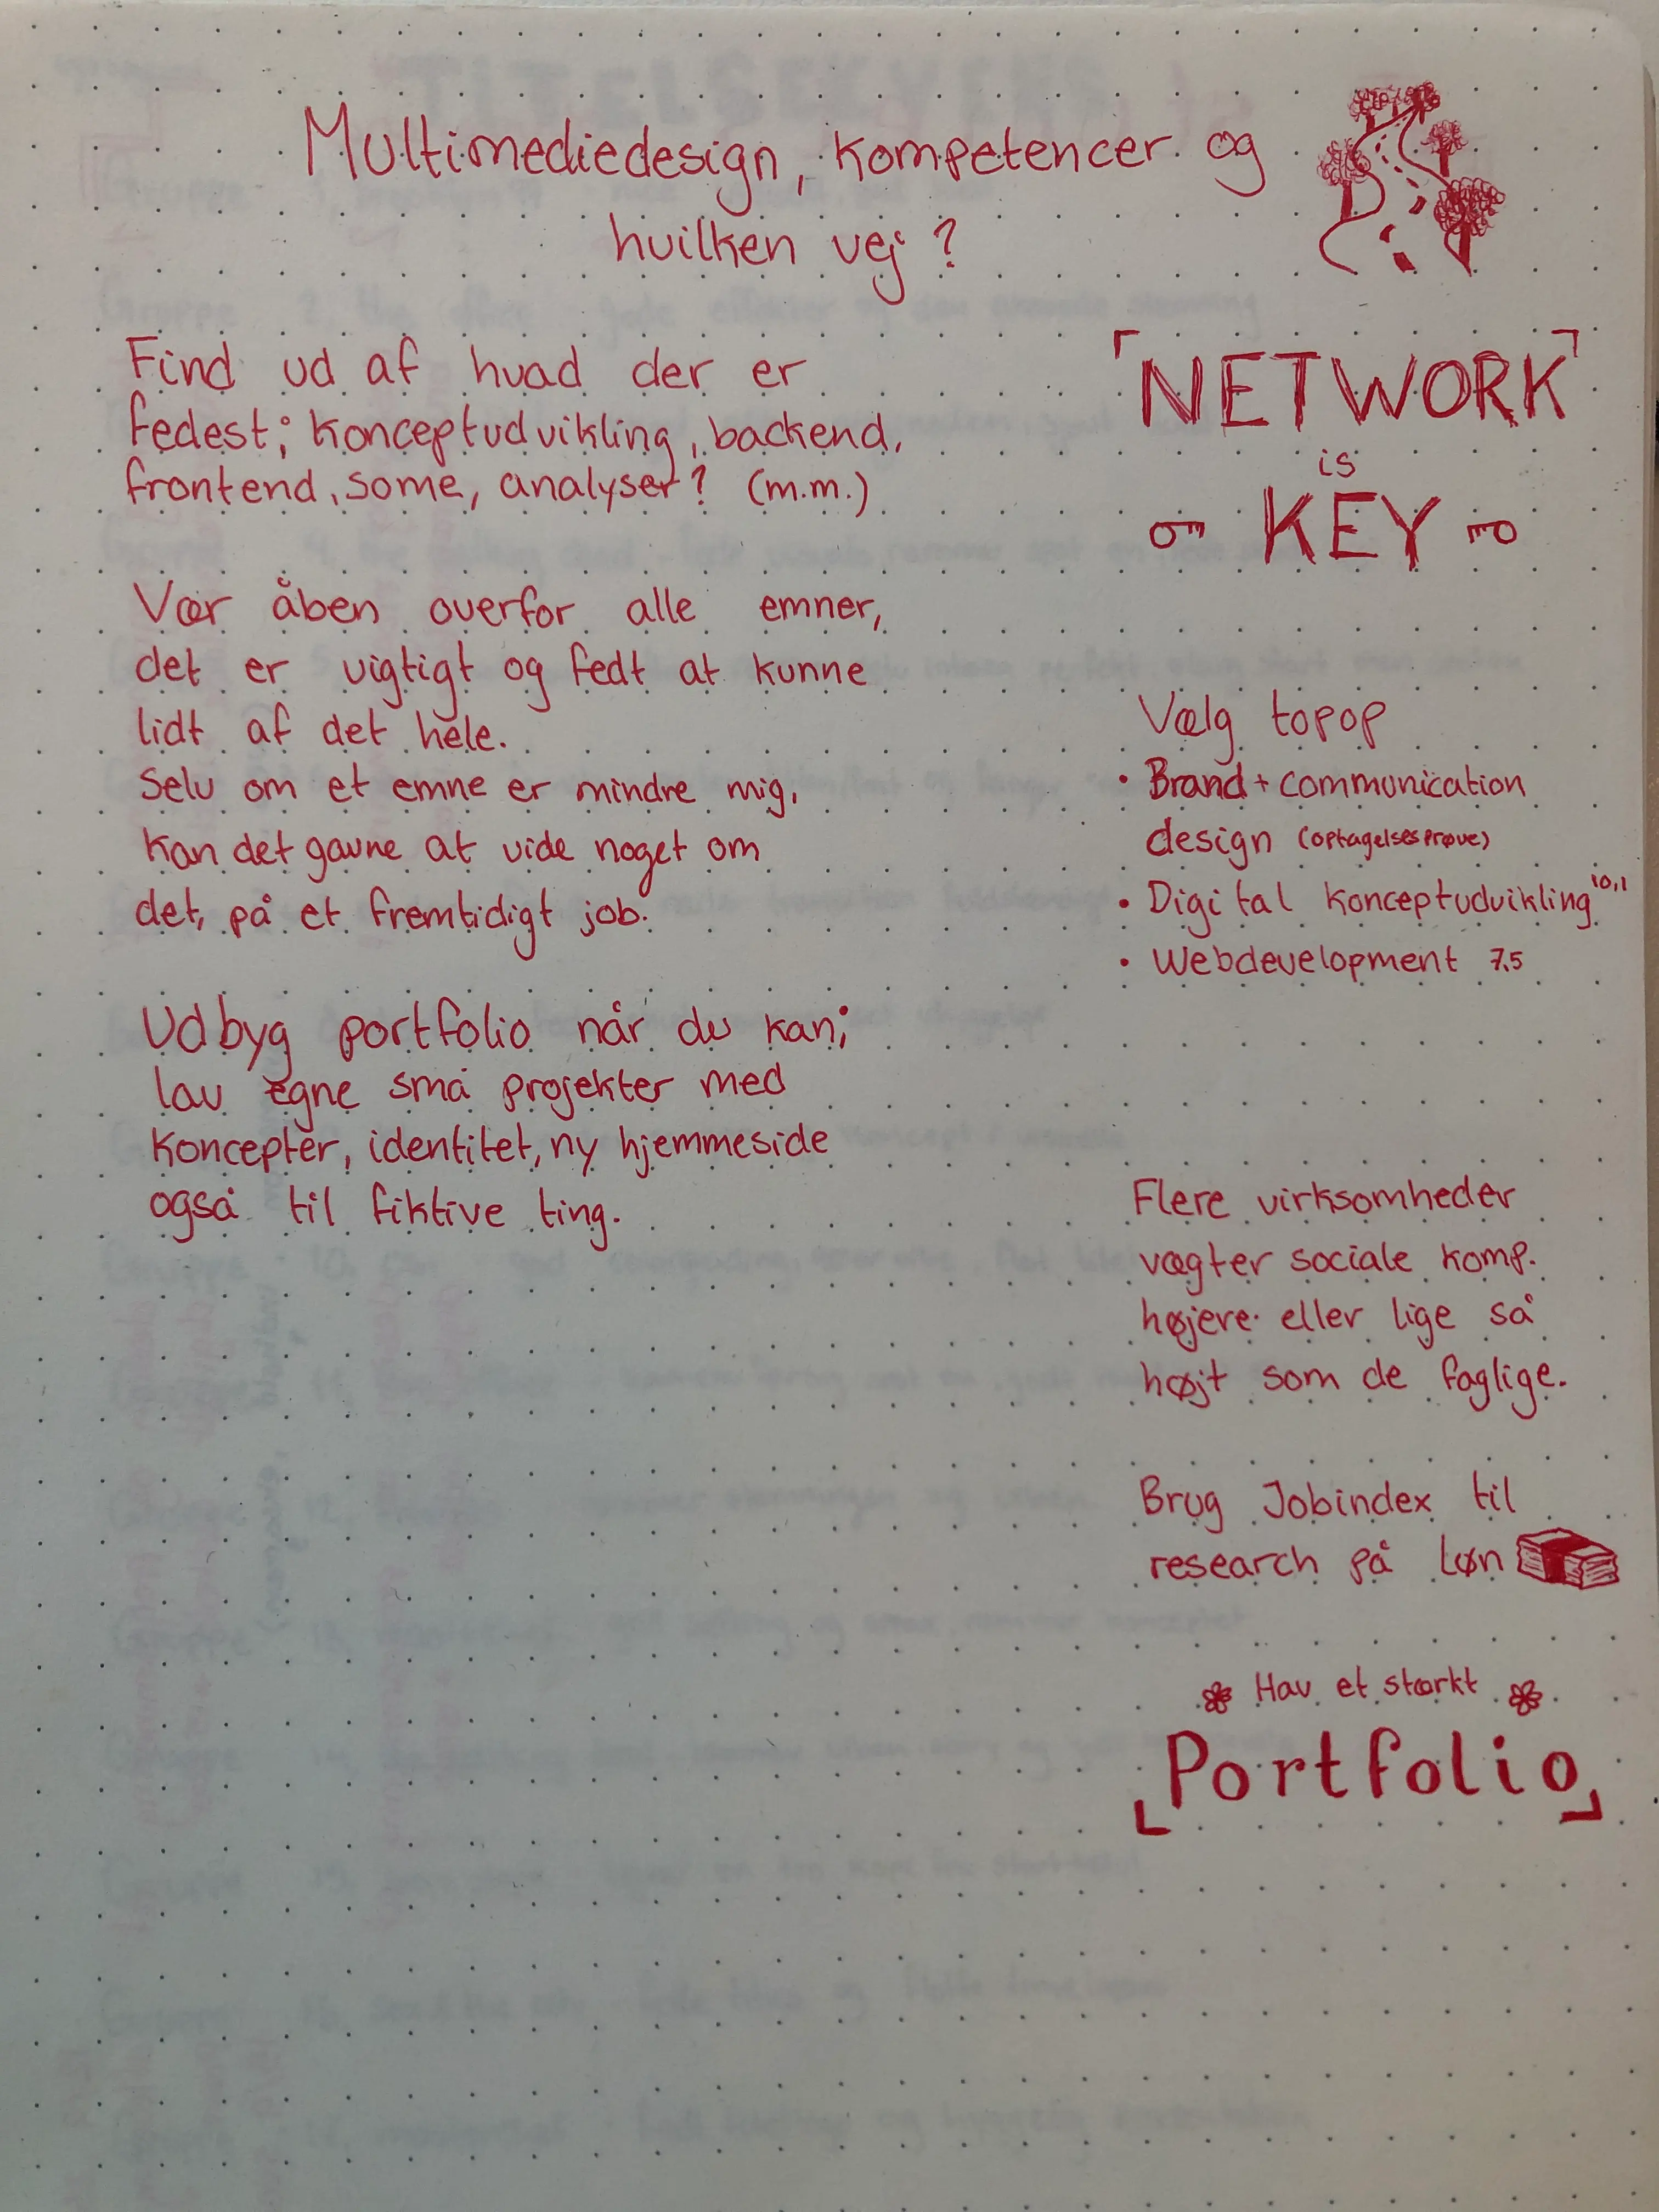 Multimediedesign, kompetencer og
hvilken vej?
Find ud af hvad der er
fedest; konceptudvikling, backend,
frontend, some, analyser? (m.m.)
Vær åben overfor alle emner,
det er vigtigt og fedt at kunne
lidt af det hele.
Selv om et emne er mindre mig,
kan det gavne at vide noget om
det, på et fremtidigt job.
Udbyg portfolio når du kan;
lav egne små projekter med
koncepter, identitet, ny hjemmeside
også til fiktive ting.
NETWORK
is
KEY
Vælg topop
• Brand + communication
design (optagelsesprøve)
• Digital konceptudvikling 10,1
• Webdevelopment 7.5
Flere virksomheder
vægter sociale komp.
højere eller lige så
højt som de faglige.
Brug Jobindex til
research på løn
Hav et stærkt
Portfolio